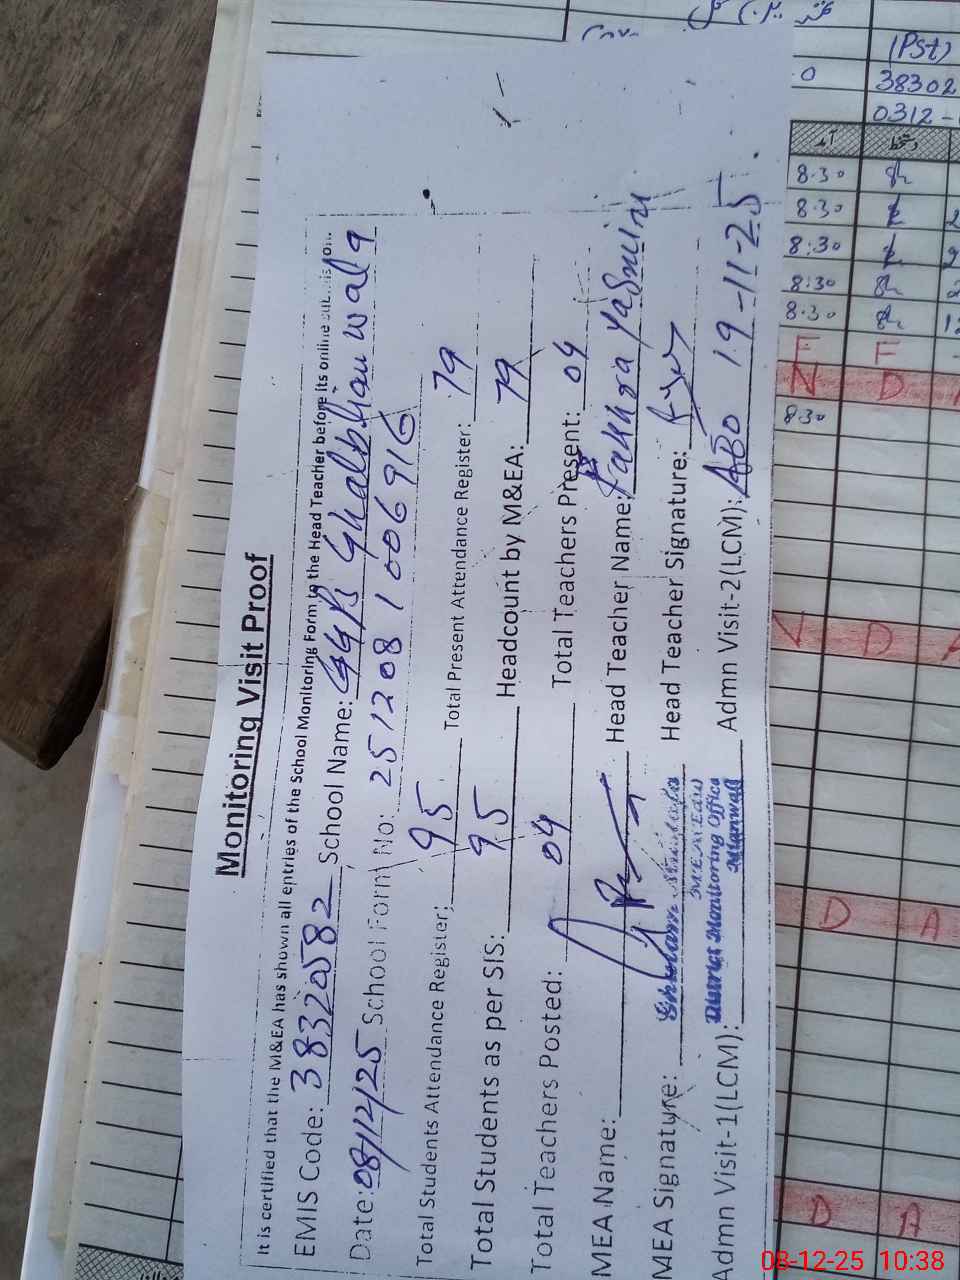 Monitoring Visit Proof
It is certified that the M&EA has shown all entries of the School Monitoring Form to the Head Teacher before its online submission.
EMIS Code: 38320582 School Name: GGPS Ghalbhianwala
Date: 08/12/25 School Form No: 251208 1006916
Total Students Attendance Register: 95 Total Present Attendance Register: 79
Total Students as per SIS: 95 Headcount by M&EA: 79
Total Teachers Posted: 04 Total Teachers Present: 04
MEA Name: Head Teacher Name: Fakhra Yasmin
MEA Signature: Head Teacher Signature:
Ghulam Mustafa
District Monitoring Office
Mianwali
Admn Visit-1(LCMI): Admn Visit-2(LCMI): 19-11-25
(Pst)
38302
0312-
آمد
8.30
8.30
8:30
8:30
8.30
F F
N D
8.30
N D A
D A
D A
08-12-25 10:38